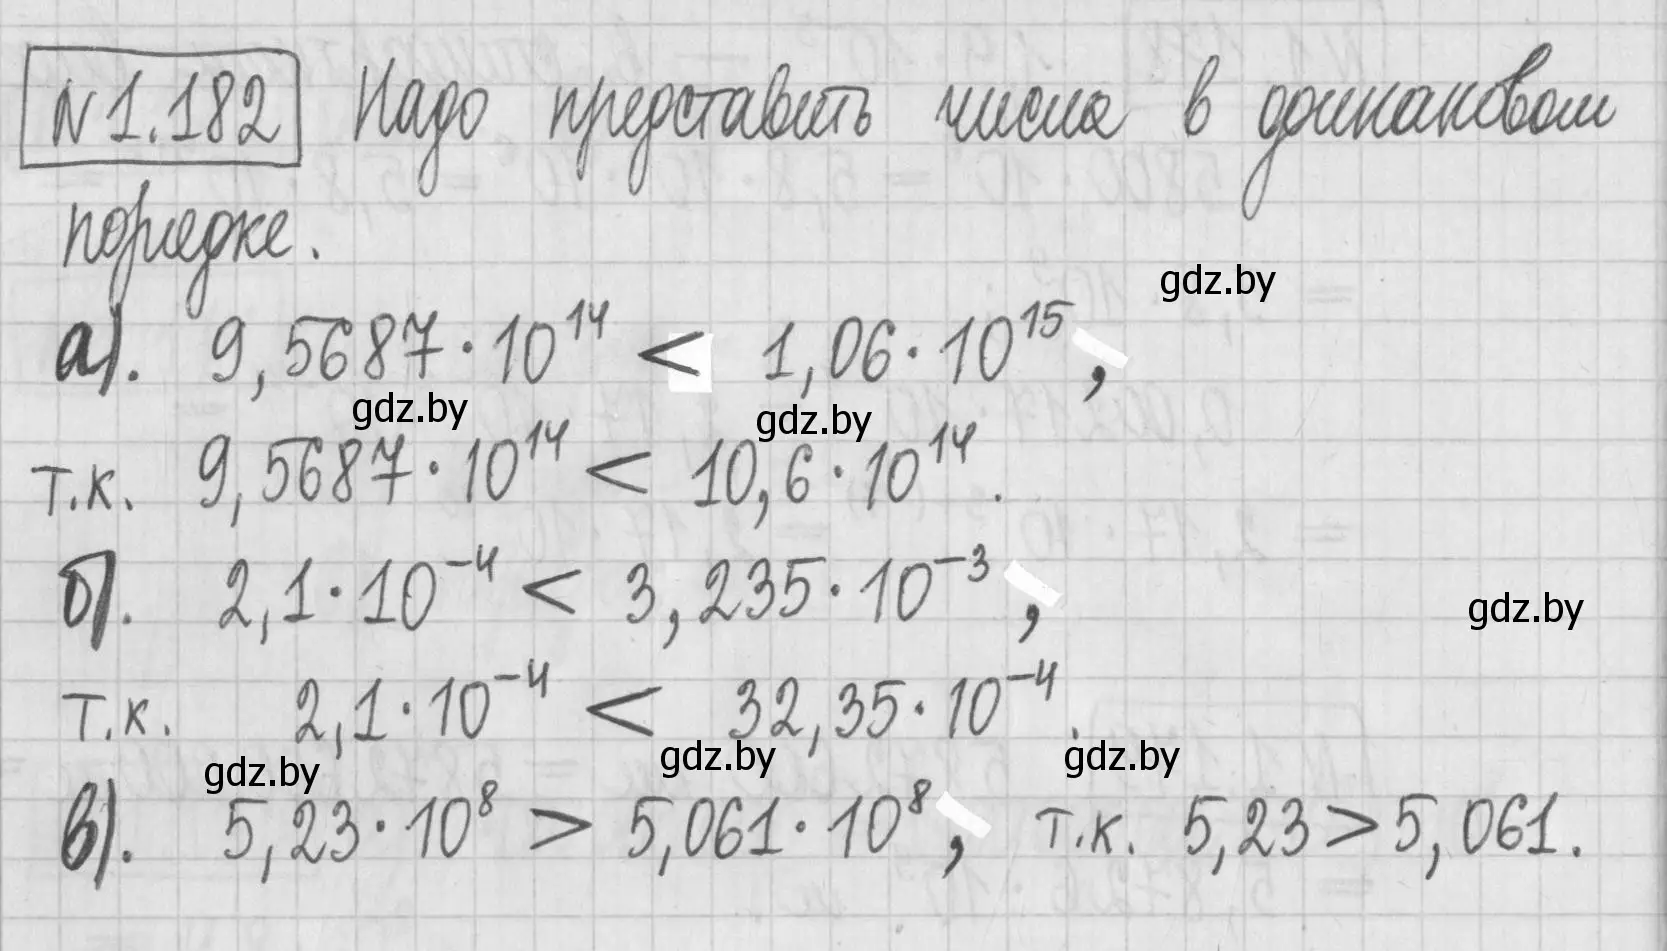 №1.182 Надо представить числа в одинаковом
порядке.
gdz.by
а). 9,5687·10¹⁴ < 1,06·10¹⁵,
gdz.by gdz.by
т.к. 9,5687·10¹⁴ < 10,6·10¹⁴.
б). 2,1·10⁻⁴ < 3,235·10⁻³,
gdz.by
т.к. 2,1·10⁻⁴ < 32,35·10⁻⁴.
gdz.by gdz.by gdz.by
в). 5,23·10⁸ > 5,061·10⁸, т.к. 5,23 > 5,061.